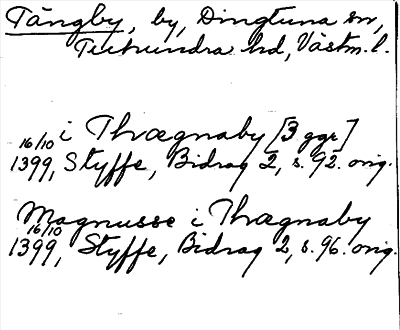 Tångby, by, Dingtuna sn,
Tuhundra hd, Västm. l.
i Thrægnaby [3 ggr]
16/10
1399, Styffe, Bidrag 2, s. 92. orig.
Magnusse i Thrægnaby
16/10
1399, Styffe, Bidrag 2, s. 96. orig.